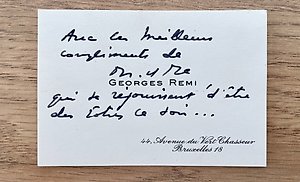 Avec les meilleurs
compliments de
M. & Me
GEORGES REMI
qui se réjouissent d'être
des vôtres ce soir...
44, Avenue du Vert Chasseur
Bruxelles 18